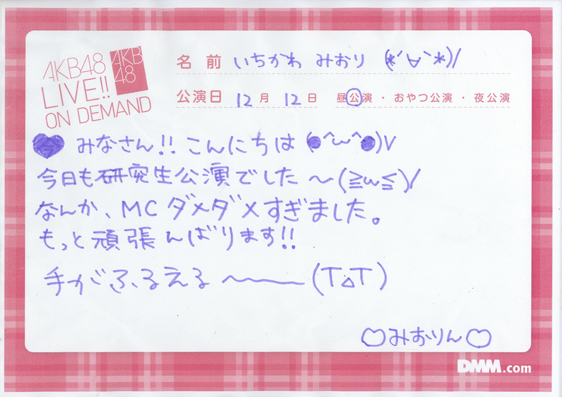 AKB48
LIVE!!
ON DEMAND
AKB
48
名前 いちかわ みおり (*´∀`*)/
公演日 12月 12日 昼公演・おやつ公演・夜公演
みなさん!! こんにちは (●^ω^●)v
今日も研究生公演でした〜(≧ω≦)/
なんか、MCダメダメすぎました。
もっと頑張んばります!!
手がふるえる〜〜(T△T)
♡みおりん♡
DMM.com